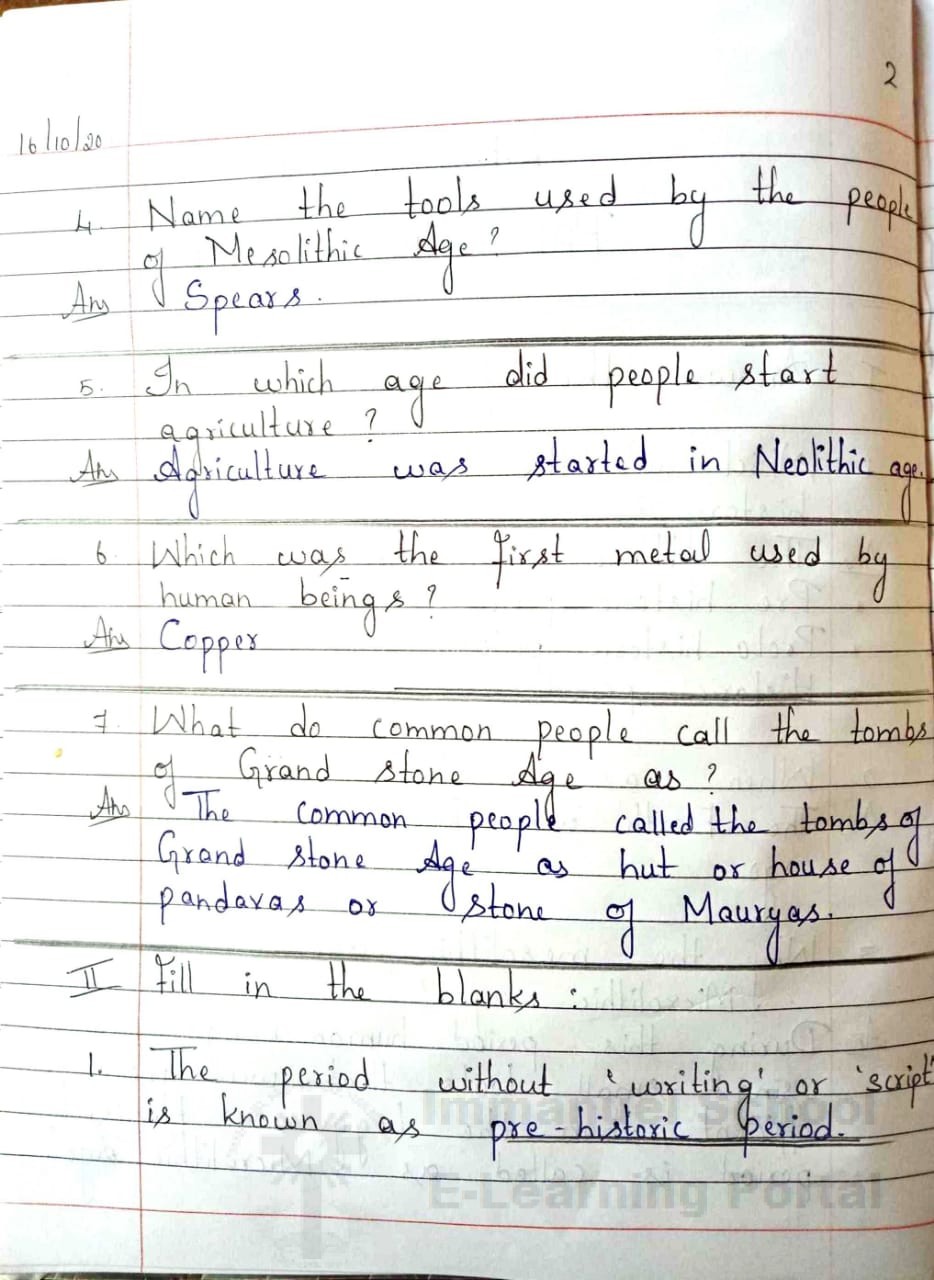 2
16/10/20
4. Name the tools used by the people
of Mesolithic Age?
Ans Spears.
5. In which age did people start
agriculture?
Ans Agriculture was started in Neolithic age.
6. Which was the first metal used by
human beings?
Ans Copper
7. What do common people call the tombs
of Grand stone Age as?
Ans The common people called the tombs of
Grand stone Age as hut or house of
pandavas or stone of Mauryas.
II Fill in the blanks:
1. The period without 'writing' or 'script'
is known as pre-historic period.
Immanuel School
E-Learning Portal